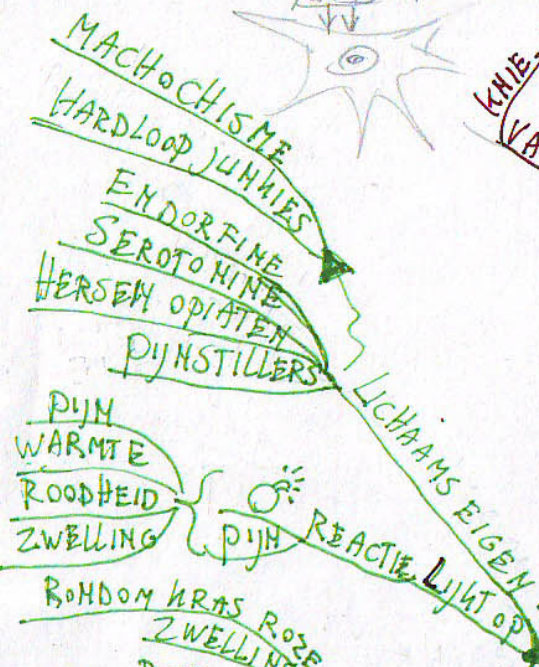 MACHOCHISME
HARDLOOP JUNKIES
ENDORFINE
SEROTONINE
HERSEN OPIATEN
PIJNSTILLERS
LICHAAMS EIGEN
PIJN
WARMTE
ROODHEID
ZWELLING
PIJN
REACTIE LIJKT OP
RONDOM KRAS ROZE
ZWELLING
KNIE
VA